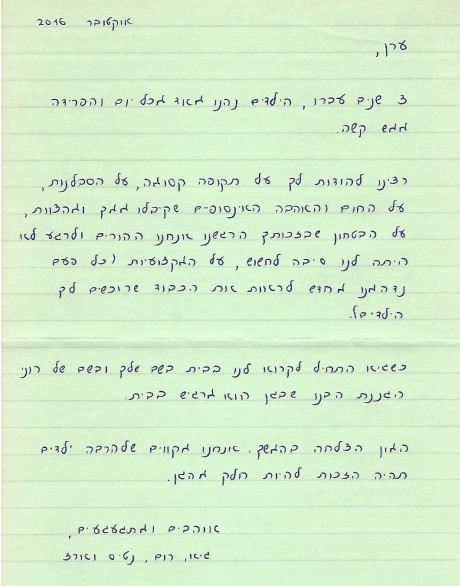 אוקטובר 2016
ערן,
3 שנים עברו, הילדים נהנו מאוד מכל יום והפרידה
ממש קשה.
רצינו להודות לך על תקופה קסומה, על הסבלנות,
על החום והאהבה האינסופיים שקיבלו ממך ומהצוות,
על הבטחון שבזכותך הרגשנו אנחנו ההורים ולרגע לא
היתה לנו סיבה לחשוש, על המקצועיות (כל פעם
נדהמנו מחדש לראות את הכבוד שרוכשים לך
הילדים).
כשגיאו התחיל לקרוא לנו בבית בשם שלך ובשם של רוני
הגננת הבנו שבגן הוא מרגיש בבית.
המון הצלחה בהמשך. אנחנו מקווים שלהרבה ילדים
תהיה הזכות להיות חלק מהגן.
אוהבים ומתגעגעים,
גיאו, רום, נטיס וארז